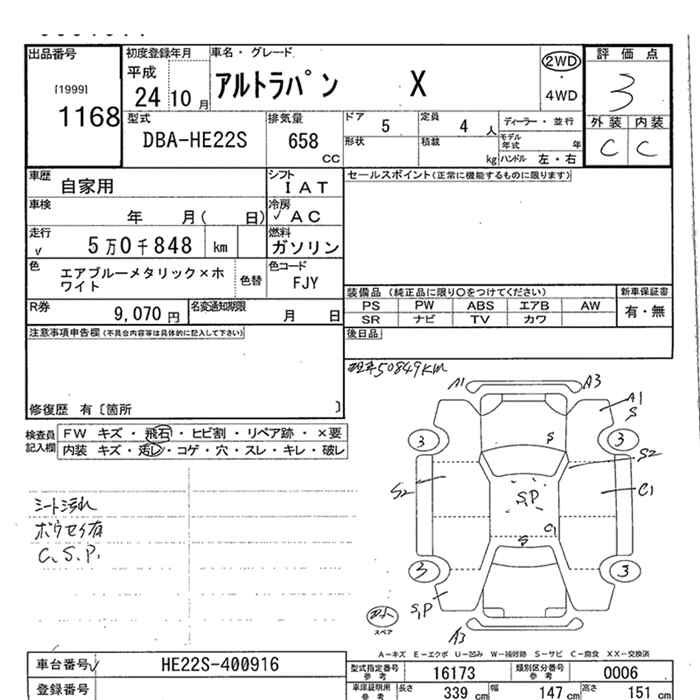 出品番号
[1999]
1168
初度登録年月
平成
24 10 月
車名・グレード
アルトラパン X
2WD
・
4WD
評価点
3
外装 内装
C C
型式
DBA-HE22S
排気量
658
CC
ドア
5
定員
4 人
ディーラー・並行
形状
積載
kg
モデル年式 年
ハンドル 左・右
車歴
自家用
シフト
I A T
車検
年 月( 日)
冷房
✓ A C
走行
✓ 5万0千848 km
燃料
ガソリン
色
エアブルーメタリック×ホ
ワイト
色替
色コード
FJY
R券
9,070 円
名変通知期限
月 日
セールスポイント(正常に機能するものに限ります)
装備品 (純正品に限り〇をつけてください)
PS PW ABS エアB AW
SR ナビ TV カワ
新車保証書
有・無
後日品
注意事項申告欄(不具合内容等は具体的に記入して下さい)
修復歴 有〔箇所 〕
検査員
記入欄
FW キズ・飛石・ヒビ割・リペア跡・×要
内装 キズ・汚レ・コゲ・穴・スレ・キレ・破レ
シート汚れ
ボウセイ有
C.S.P.
50849KM
A1 A3
A1
S
3 3
S
S2
S2
S,P
C1
C1
S
3 3
S,P
スペア
A3
A-キズ E-エクボ U-凹み W-補修跡 S-サビ C-腐食 XX-交換済
車台番号✓
HE22S-400916
登録番号
型式指定番号
参考
16173
類別区分番号
参考
0006
車庫証明用
参考
長さ
339 cm
幅
147 cm
高さ
151 cm